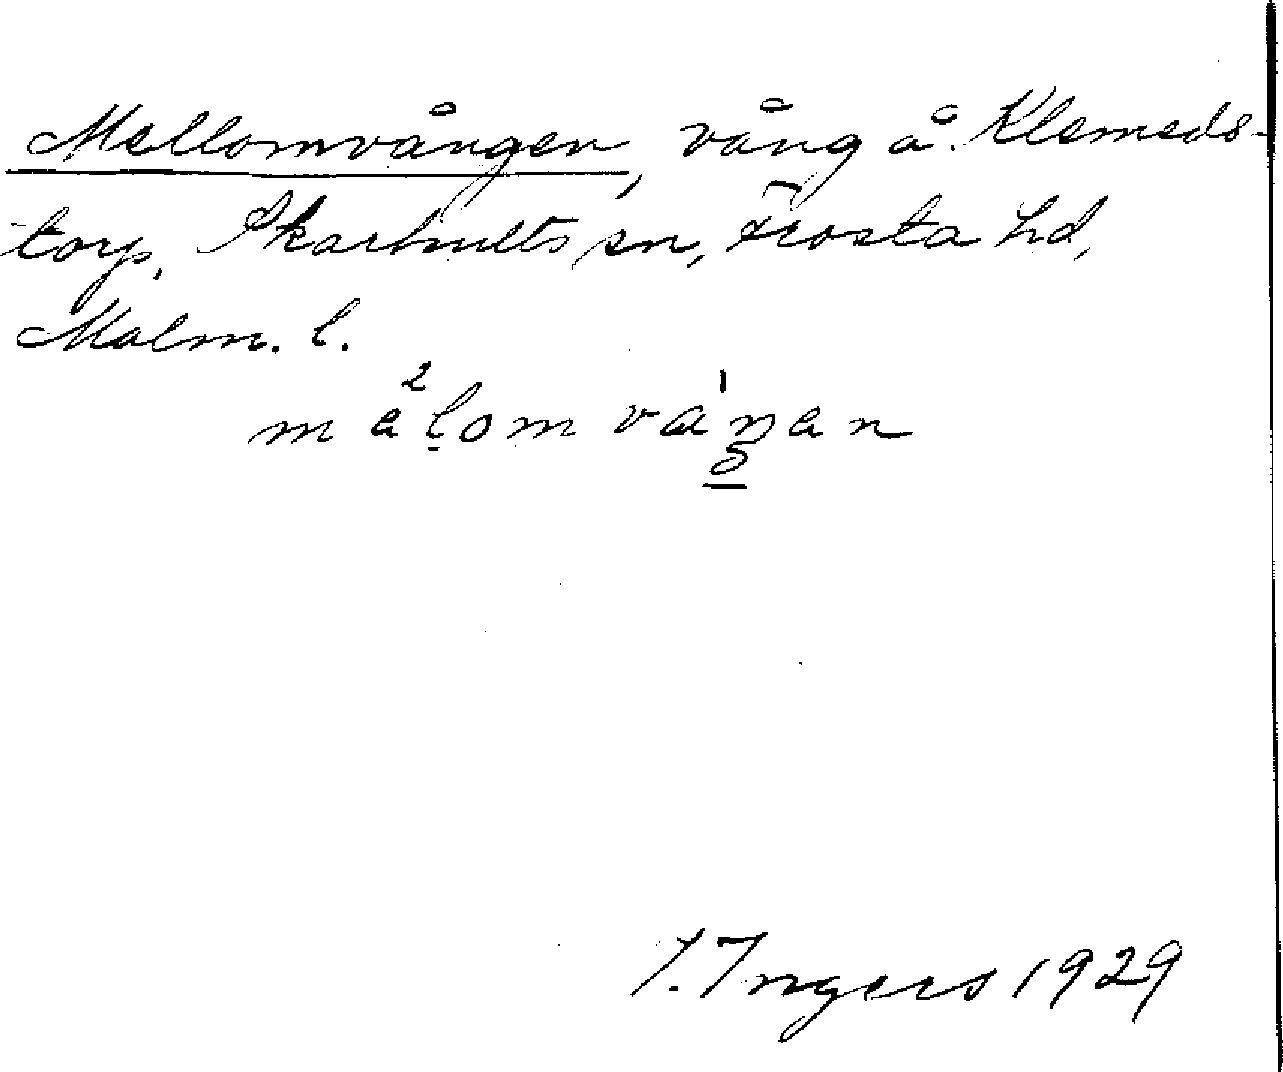 Mellomvången, vång å. Klemeds-
torp, Skarhults sn, Frosta hd,
Malm. l.
I. Ingers 1929